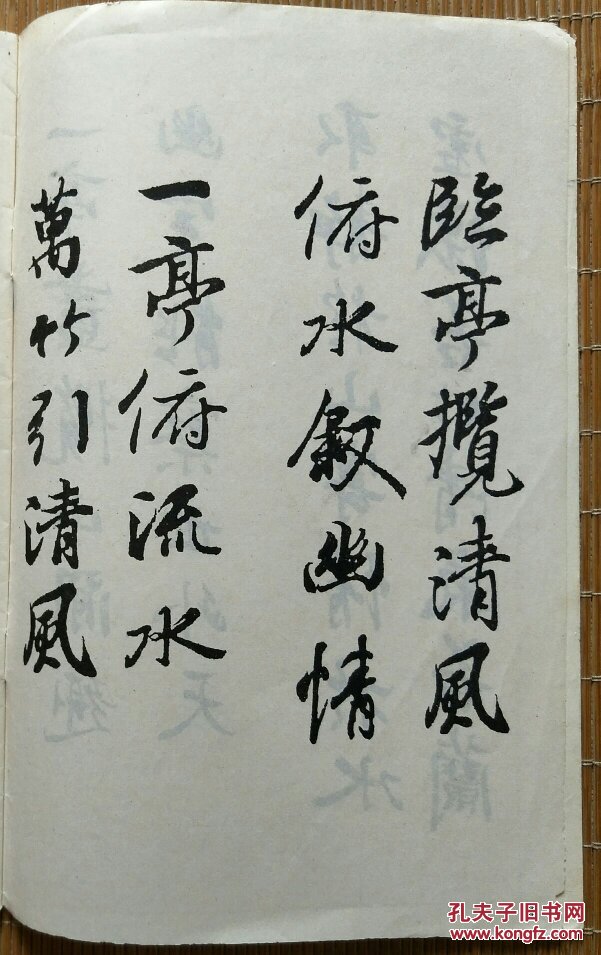 臨亭攬清風
俯水敘幽情
一亭俯流水
萬竹引清風
孔夫子旧书网
www.kongfz.com